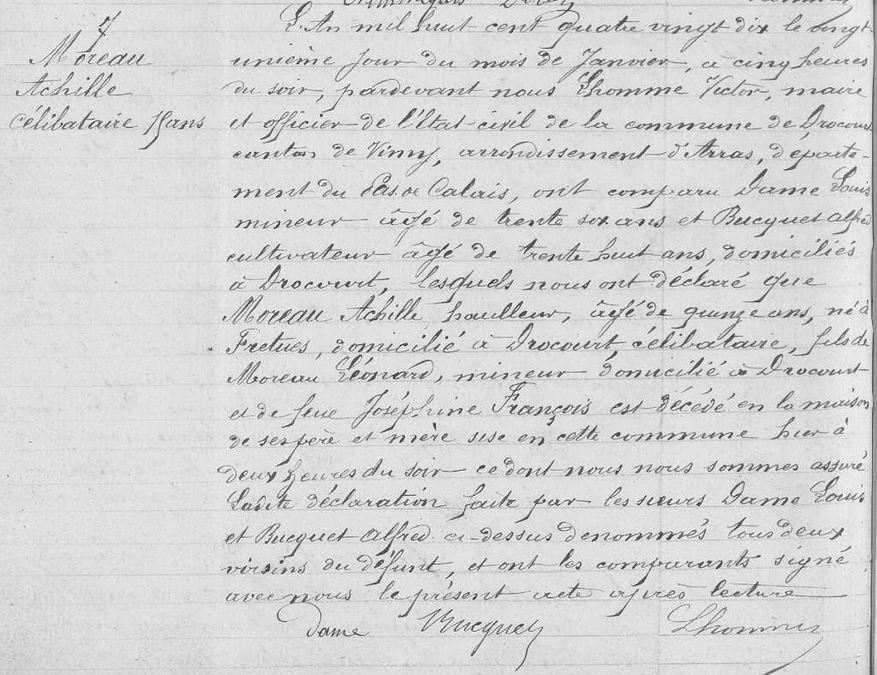 7
Moreau
Achille
célibataire 15 ans
L'An mil huit cent quatre vingt dix le vingt-
unième jour du mois de Janvier, à cinq heures
du soir, pardevant nous Lhomme Victor, maire
et officier de l'Etat-civil de la commune de Drocourt
canton de Vimy, arrondissement d'Arras, départe-
ment du Pas de Calais, ont comparu Dame Louis
mineur âgé de trente six ans et Bucquet Alfred
cultivateur âgé de trente huit ans, domiciliés
à Drocourt, lesquels nous ont déclaré que
Moreau Achille, houlleur, âgé de quinze ans, né à
domicilié à Drocourt, célibataire, fils de
Moreau Léonard, mineur domicilié à Drocourt
et de feue Joséphine François est décédé en la maison
de ses père et mère sise en cette commune hier à
deux heures du soir ce dont nous nous sommes assuré
Ladite déclaration faite par les sieurs Dame Louis
et Bucquet Alfred ci-dessus dénommés tous deux
voisins du défunt, et ont les comparants signé
avec nous le présent acte après lecture
Dame Bucquet Lhomme